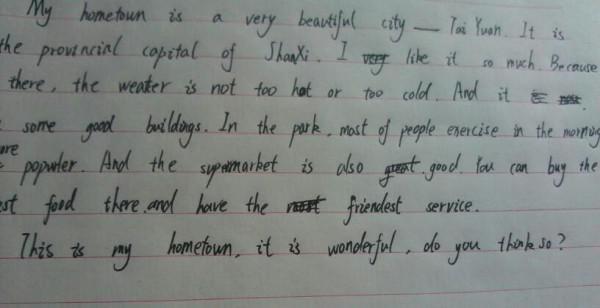 My hometown is a very beautiful city — Tai Yuan. It is
the provincial capital of ShanXi. I like it so much. Because
there, the weater is not too hot or too cold. And it
some good buildings. In the park, most of people exercise in the morning
are populer. And the supermarket is also good. You can buy the
st food there. and have the friendest service.
This is my hometown, it is wonderful, do you think so?